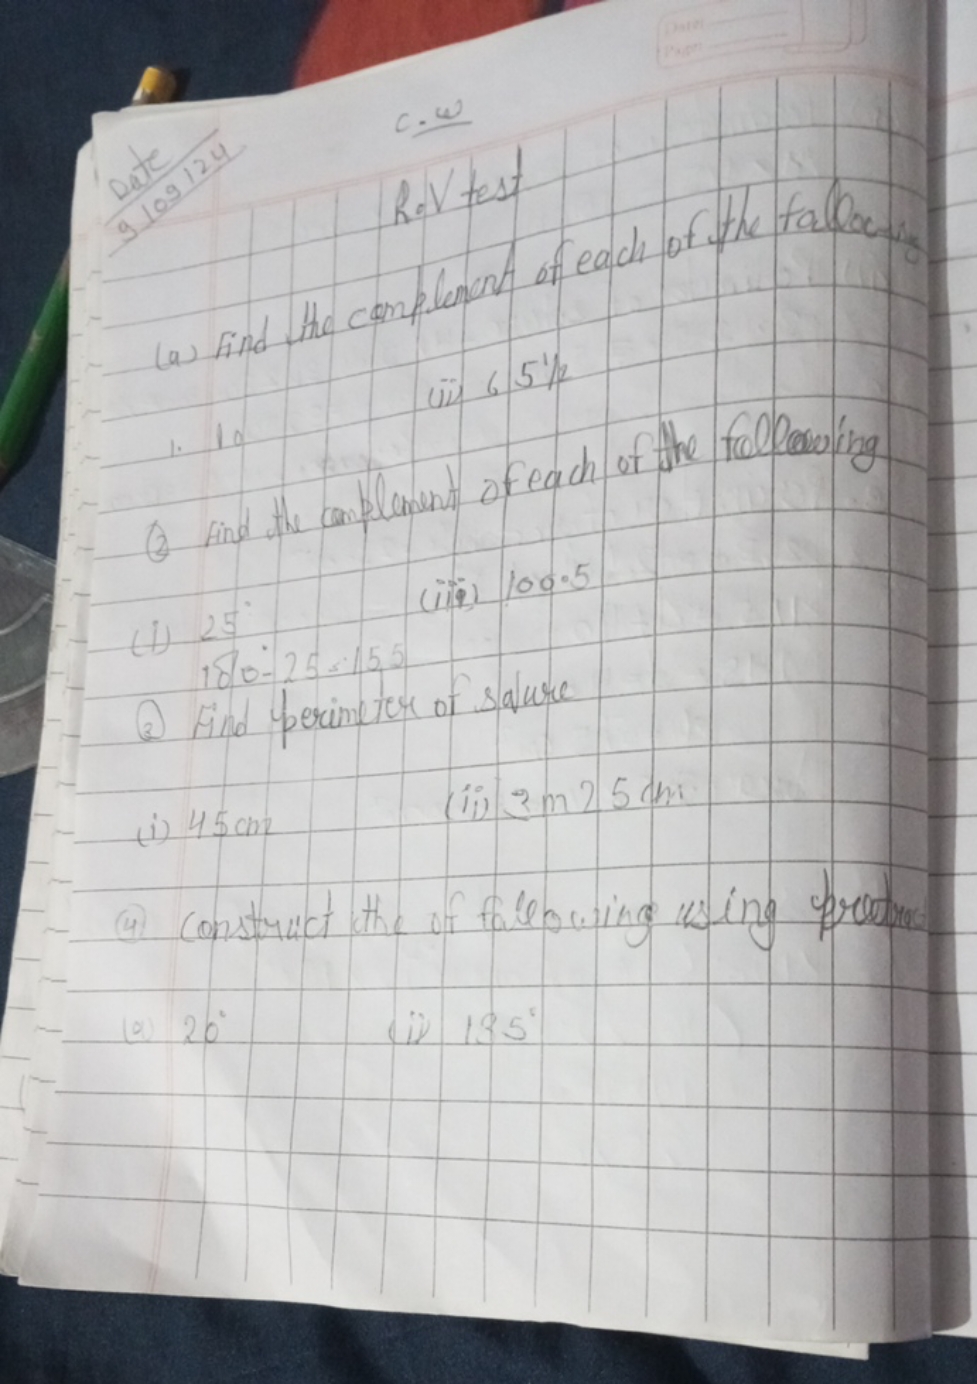 Date:
Page:
C.W
Date
9/09/24
R.V test
(a) Find the complement of each of the
1. 10 (ii) 65 1/2
② Find the complement of each of the following
(i) 25° (iii) 100.5
180°-25=155
Find perimeter of squre
(i) 45cm (ii) 3m25cm
(4) construct the of following using
(a) 20° (i) 135°